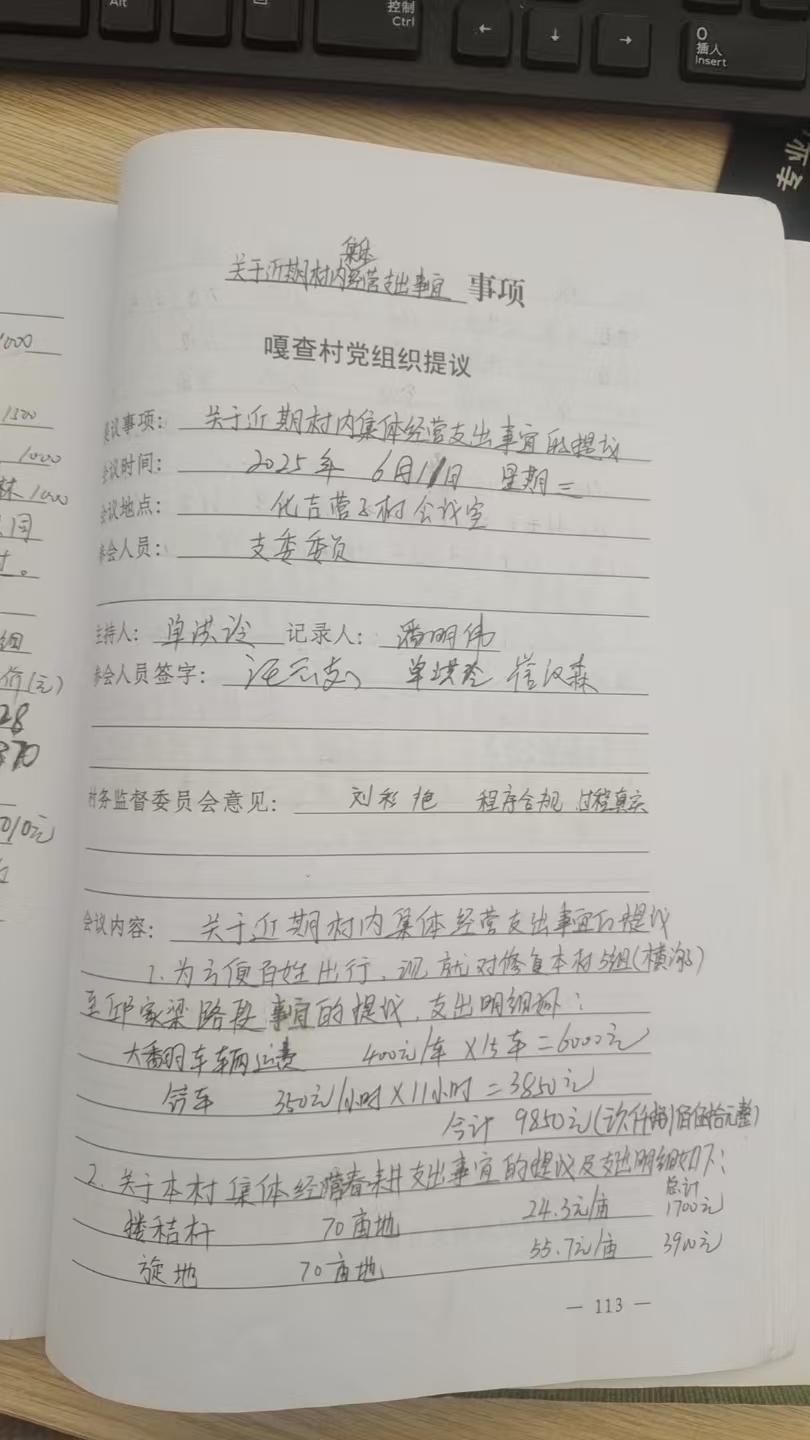 控制
Ctrl
Alt
←
↓
→
0
插人
Insert
集体
关于近期村内经营支出事宜 事项
嘎查村党组织提议
议事项： 关于近期村内集体经营支出事宜的提议
会议时间： 2025年 6月11日 星期三
会议地点： 化吉营子村会议室
参会人员： 支委委员
主持人： 单洪玲 记录人： 潘明伟
参会人员签字： 单洪玲
村务监督委员会意见： 刘彩艳 程序合规 过程真实
会议内容： 关于近期村内集体经营支出事宜的提议
1. 为方便百姓出行，现就对修复本村5组
至邱家梁路段事宜的提议，支出明细如：
大翻斗车车辆运费 400元/车 ×15车=6000元
铲车 350元/小时×11小时=3850元
合计 9850元(玖仟捌佰伍拾元整)
2. 关于本村集体经营春耕支出事宜的提议及支出明细如下：
总计
搂秸杆 70亩地 24.3元/亩 1700元
旋地 70亩地 55.7元/亩 3900元
— 113 —
1000
1500
1000
林1000
组
价(元)
28
370
010元